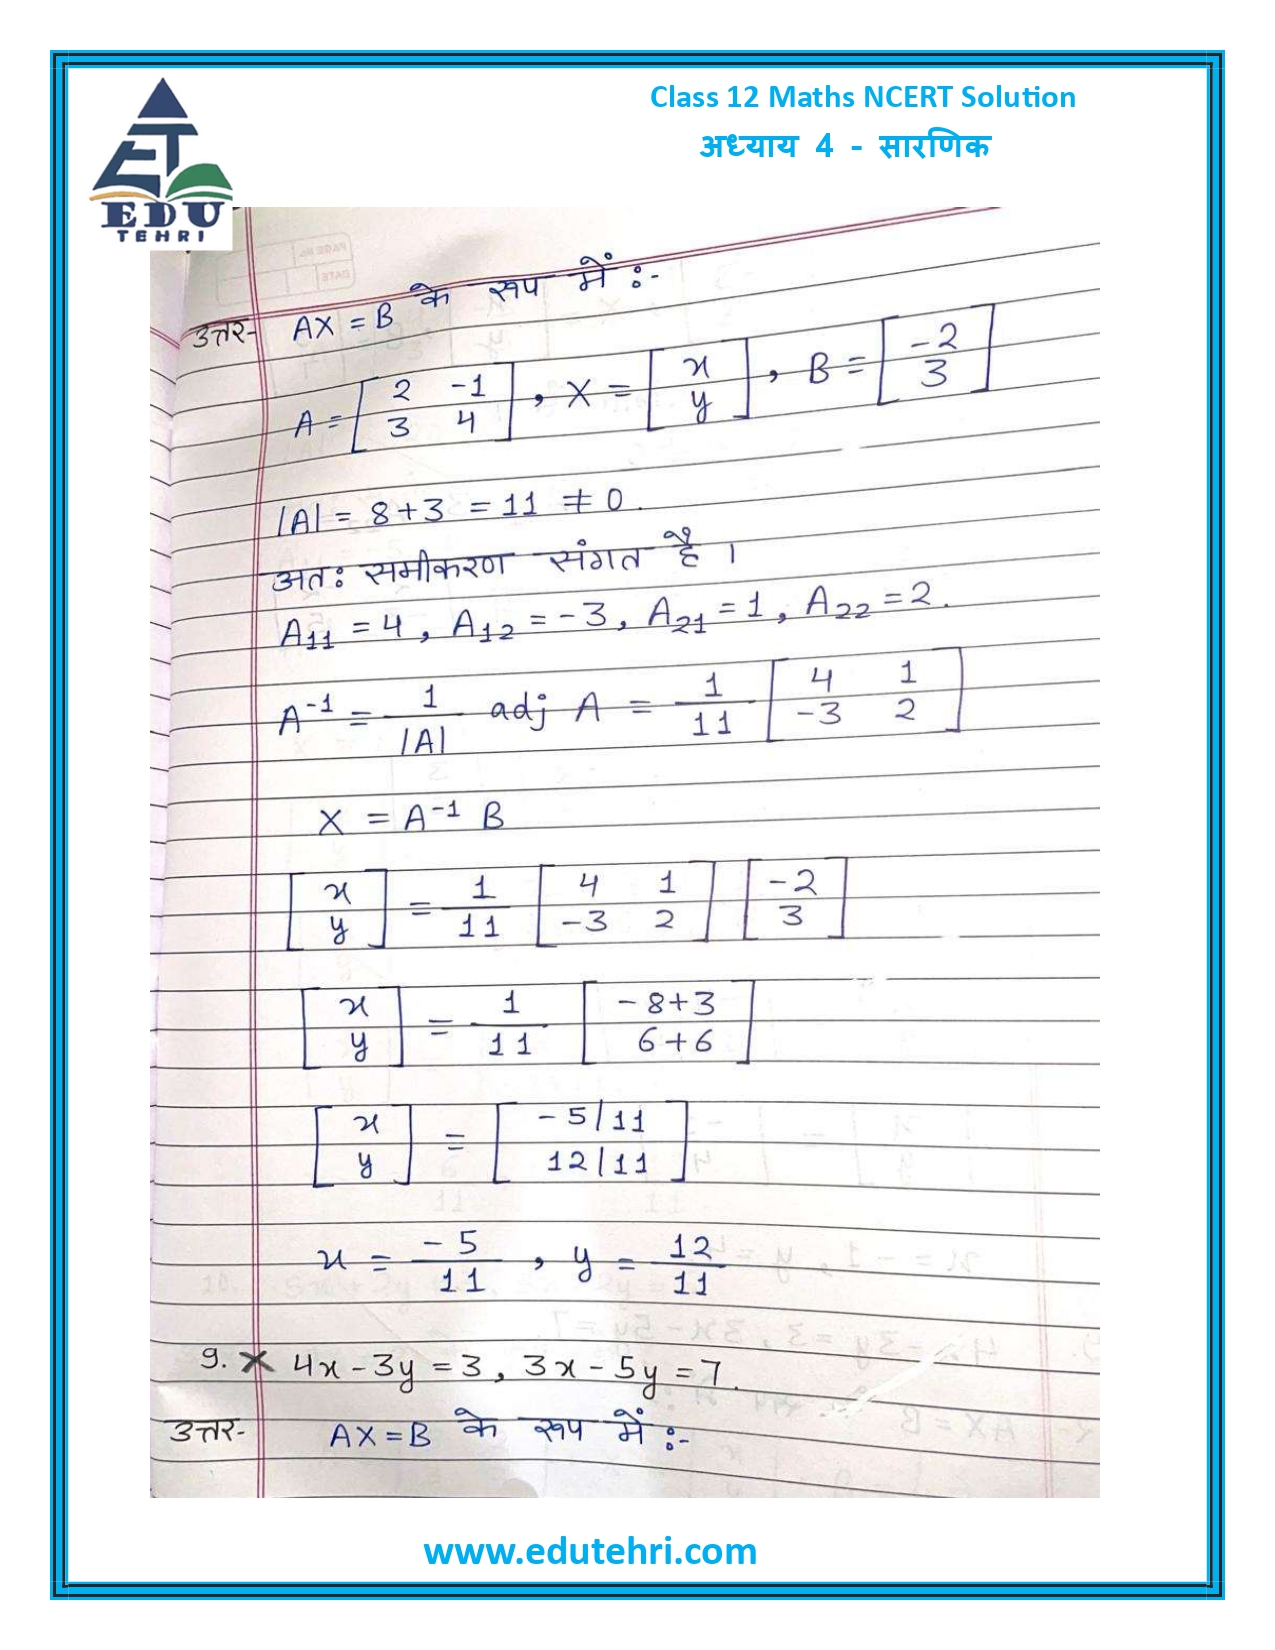 Class 12 Maths NCERT Solution
अध्याय 4 - सारणिक
EDU
TEHRI
उत्तर- AX = B के रूप में :-
A = [2 -1
3 4], X = [x
y], B = [-2
3]
|A| = 8+3 = 11 ≠ 0.
अतः समीकरण संगत है ।
A11 = 4, A12 = -3, A21 = 1, A22 = 2.
A⁻¹ = 1/|A| adj A = 1/11 [4 1
-3 2]
X = A⁻¹ B
[x
y] = 1/11 [4 1
-3 2] [-2
3]
[x
y] = 1/11 [-8+3
6+6]
[x
y] = [-5/11
12/11]
x = -5/11, y = 12/11
9. 4x - 3y = 3, 3x - 5y = 7.
उत्तर- AX = B के रूप में :-
www.edutehri.com